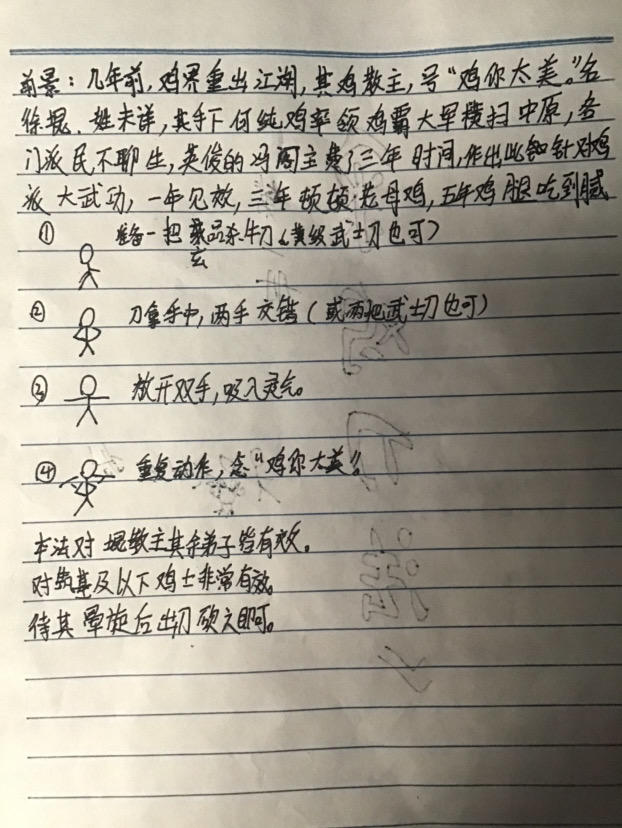 前景：几年前，鸡界重出江湖，其鸡教主，号“鸡你太美。”名
徐坤，姓未详，其手下何纯鸡率领鸡霸大军横扫中原，各
门派民不聊生，英俊的冯阁主费了三年时间，作出此针对鸡
派大武功，一年见效，三年顿顿老母鸡，五年鸡腿吃到腻
① 准备一把 品杀牛刀（黄级武士刀也可）
玄
② 刀拿手中，两手交错（或两把武士刀也可）
③ 放开双手，吸入灵气。
④ 重复动作，念“鸡你太美”。
本法对 坤教主其余弟子皆有效。
对筑基及以下鸡士非常有效。
待其晕旋后出刀砍之即可。